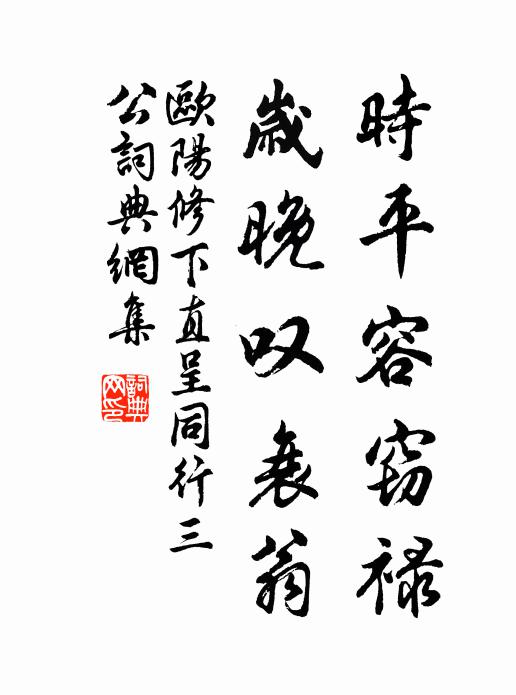 時平容窃禄
歲晚叹衰翁
歐陽修下直呈同行三
公詞典網集
詞典网印